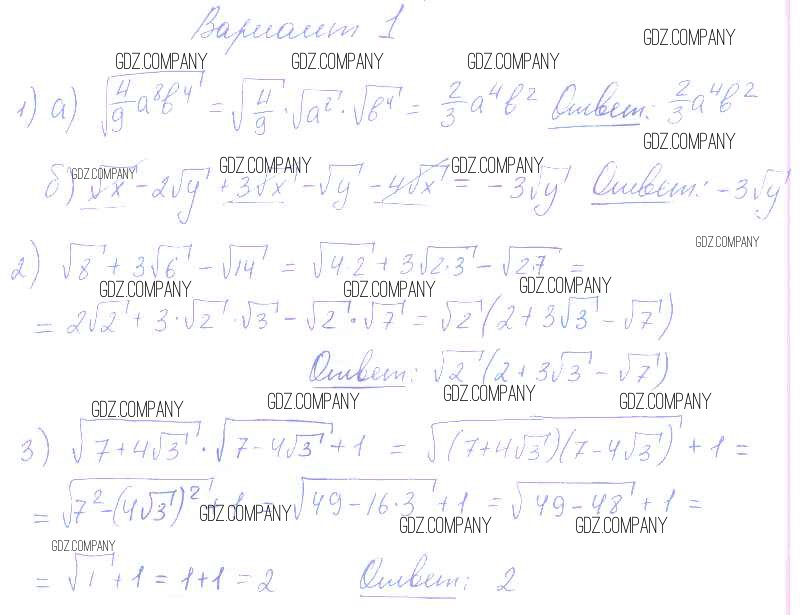 Вариант 1
GDZ.COMPANY
GDZ.COMPANY GDZ.COMPANY GDZ.COMPANY
1) а) √(4/9 a⁸b⁴) = √(4/9) · √(a²) · √(b⁴) = 2/3 a⁴b² Ответ: 2/3 a⁴b²
GDZ.COMPANY
GDZ.COMPANY GDZ.COMPANY GDZ.COMPANY
б) √x - 2√y + 3√x - √y - 4√x = - 3√y Ответ: - 3√y
GDZ.COMPANY
2) √8 + 3√6 - √14 = √(4·2) + 3√(2·3) - √(2·7) =
GDZ.COMPANY GDZ.COMPANY GDZ.COMPANY
= 2√2 + 3·√2·√3 - √2·√7 = √2 (2 + 3√3 - √7)
Ответ: √2 (2 + 3√3 - √7)
GDZ.COMPANY GDZ.COMPANY GDZ.COMPANY GDZ.COMPANY
3) √(7+4√3) · √(7-4√3) + 1 = √((7+4√3)(7-4√3)) + 1 =
= √(7²-(4√3)²) + 1 = √(49-16·3) + 1 = √(49-48) + 1 =
GDZ.COMPANY GDZ.COMPANY GDZ.COMPANY
GDZ.COMPANY
= √1 + 1 = 1+1 = 2 Ответ: 2